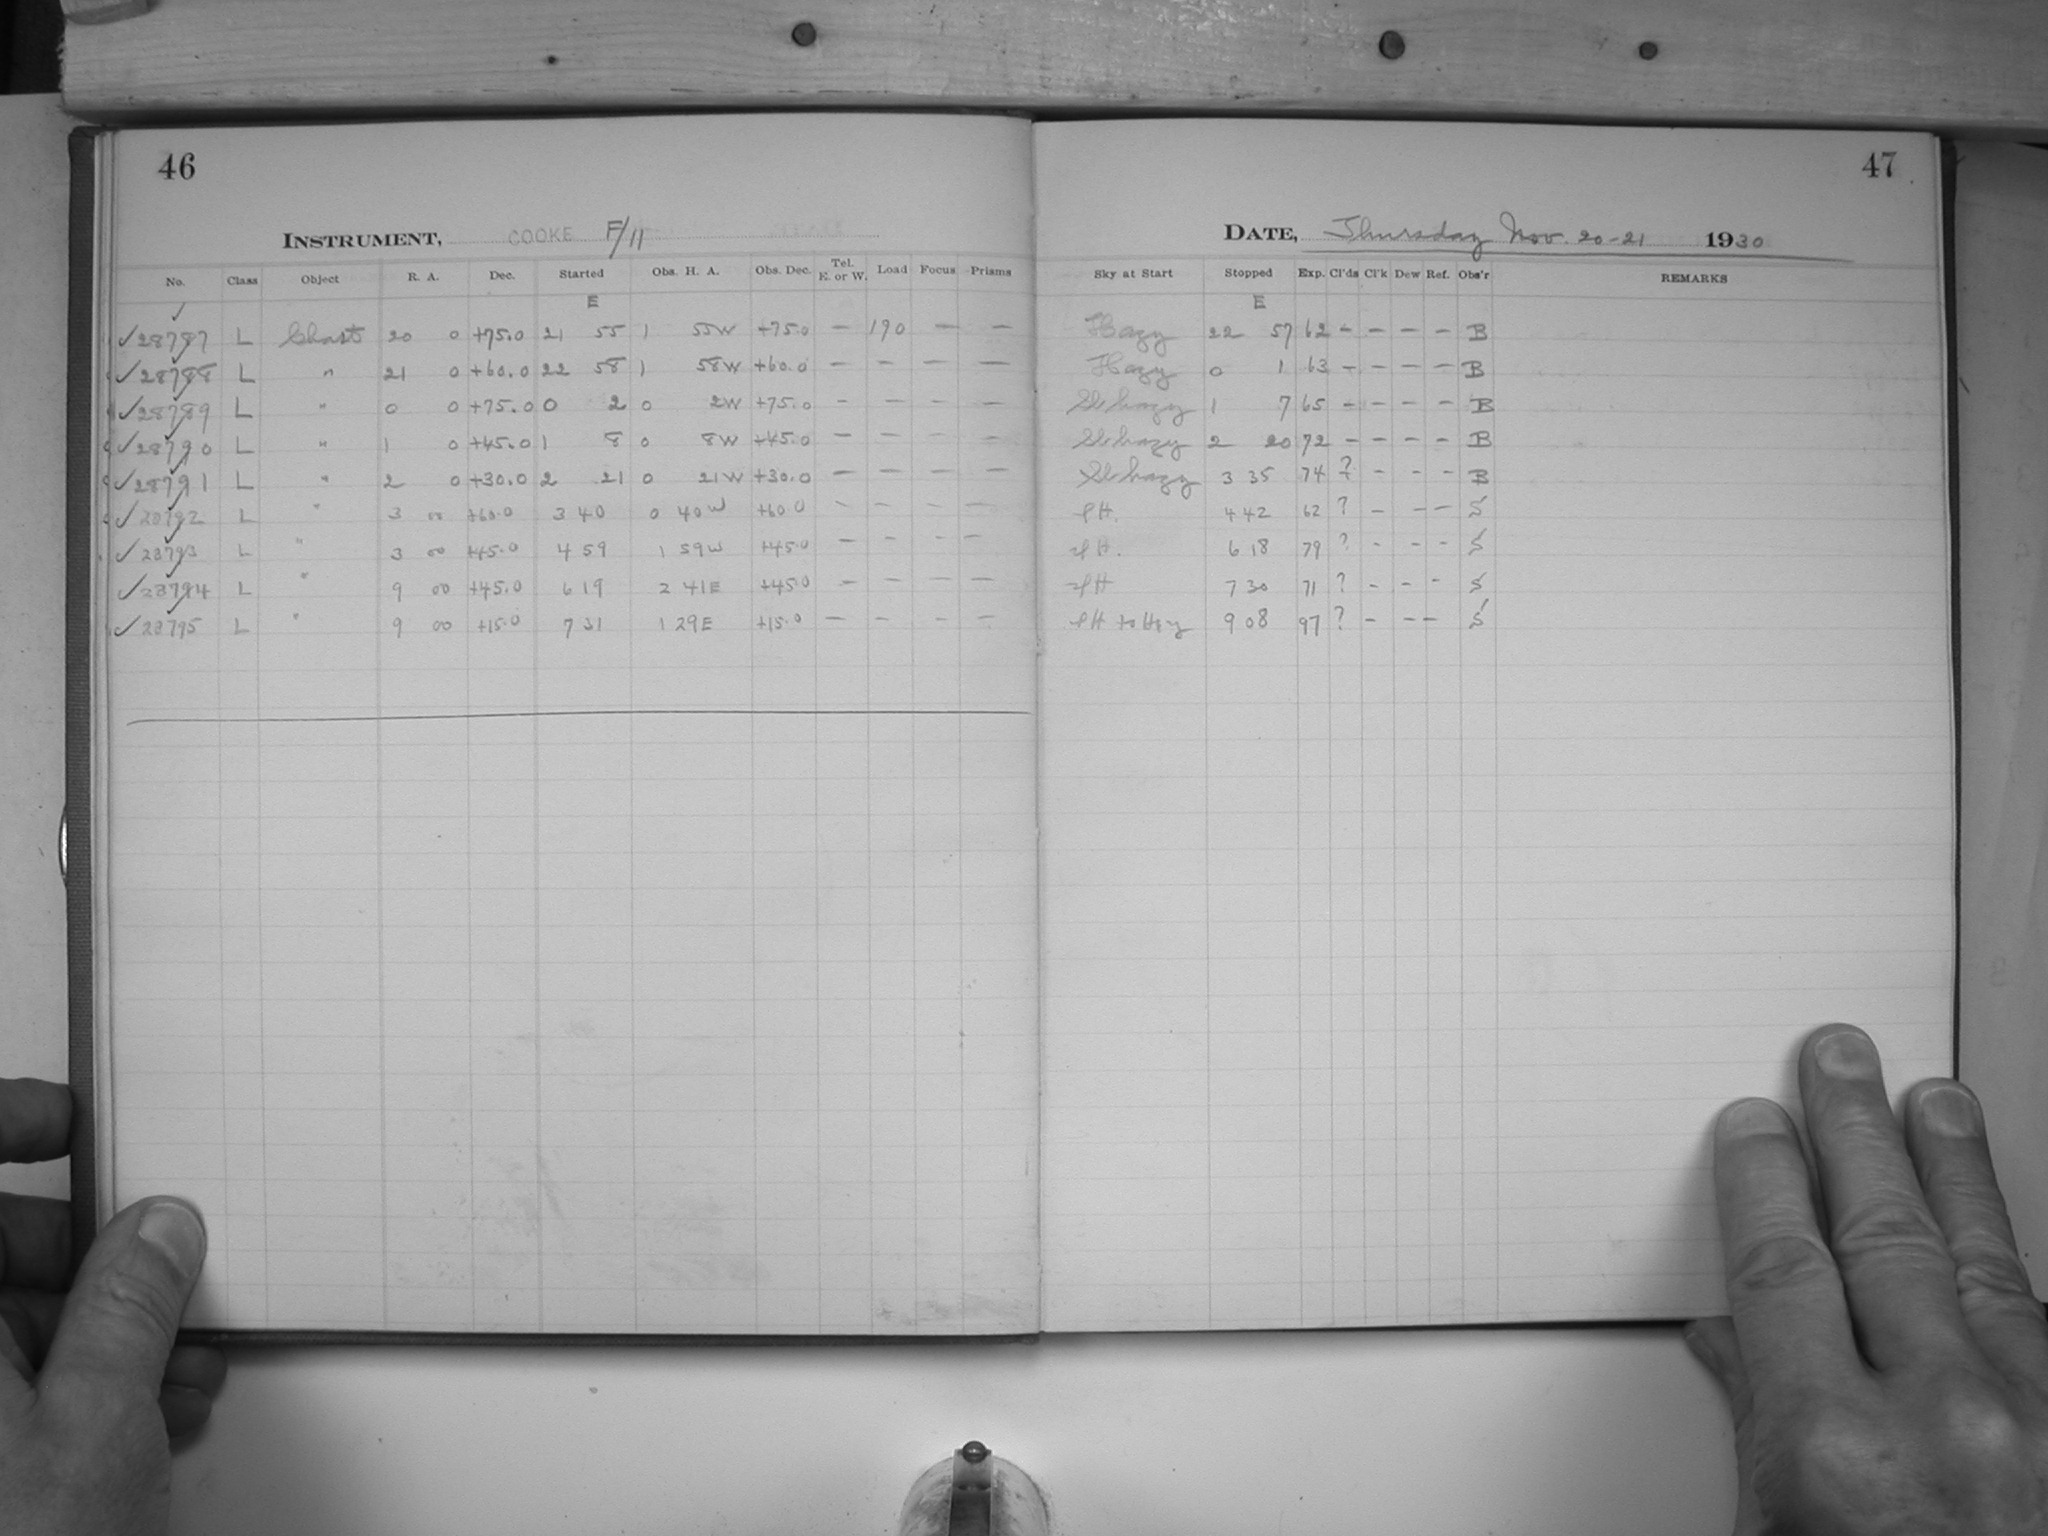 46
INSTRUMENT, COOKE F/11
No. Class Object R. A. Dec. Started Obs. H. A. Obs. Dec. Tel. E. or W. Load Focus Prisms
E
✓ 28787 L Chart 20 0 +75.0 21 55 1 55W +75.0 — 190 — —
✓ 28788 L " 21 0 +60.0 22 58 1 58W +60.0 — — — —
✓ 28789 L " 0 0 +75.0 0 2 0 2W +75.0 — — — —
✓ 28790 L " 1 0 +45.0 1 8 0 8W +45.0 — — — —
✓ 28791 L " 2 0 +30.0 2 21 0 21W +30.0 — — — —
✓ 28792 L " 3 00 +60.0 3 40 0 40W +60.0 — — — —
✓ 28793 L " 3 00 +45.0 4 59 1 59W +45.0 — — — —
✓ 28794 L " 9 00 +45.0 6 19 2 41E +45.0 — — — —
✓ 28795 L " 9 00 +15.0 7 31 1 29E +15.0 — — — —
47
DATE, Thursday Nov. 20-21 1930
Sky at Start Stopped Exp. Cl'ds Cl'k Dew Ref. Obs'r REMARKS
E
Hazy 22 57 62 — — — — B
Hazy 0 1 63 — — — — B
Sl hazy 1 7 65 — — — — B
Sl hazy 2 20 72 — — — — B
Sl hazy 3 35 74 ? — — — B
4 42 62 ? — — — S
6 18 79 ? — — — S
7 30 71 ? — — — S
9 08 97 ? — — — S